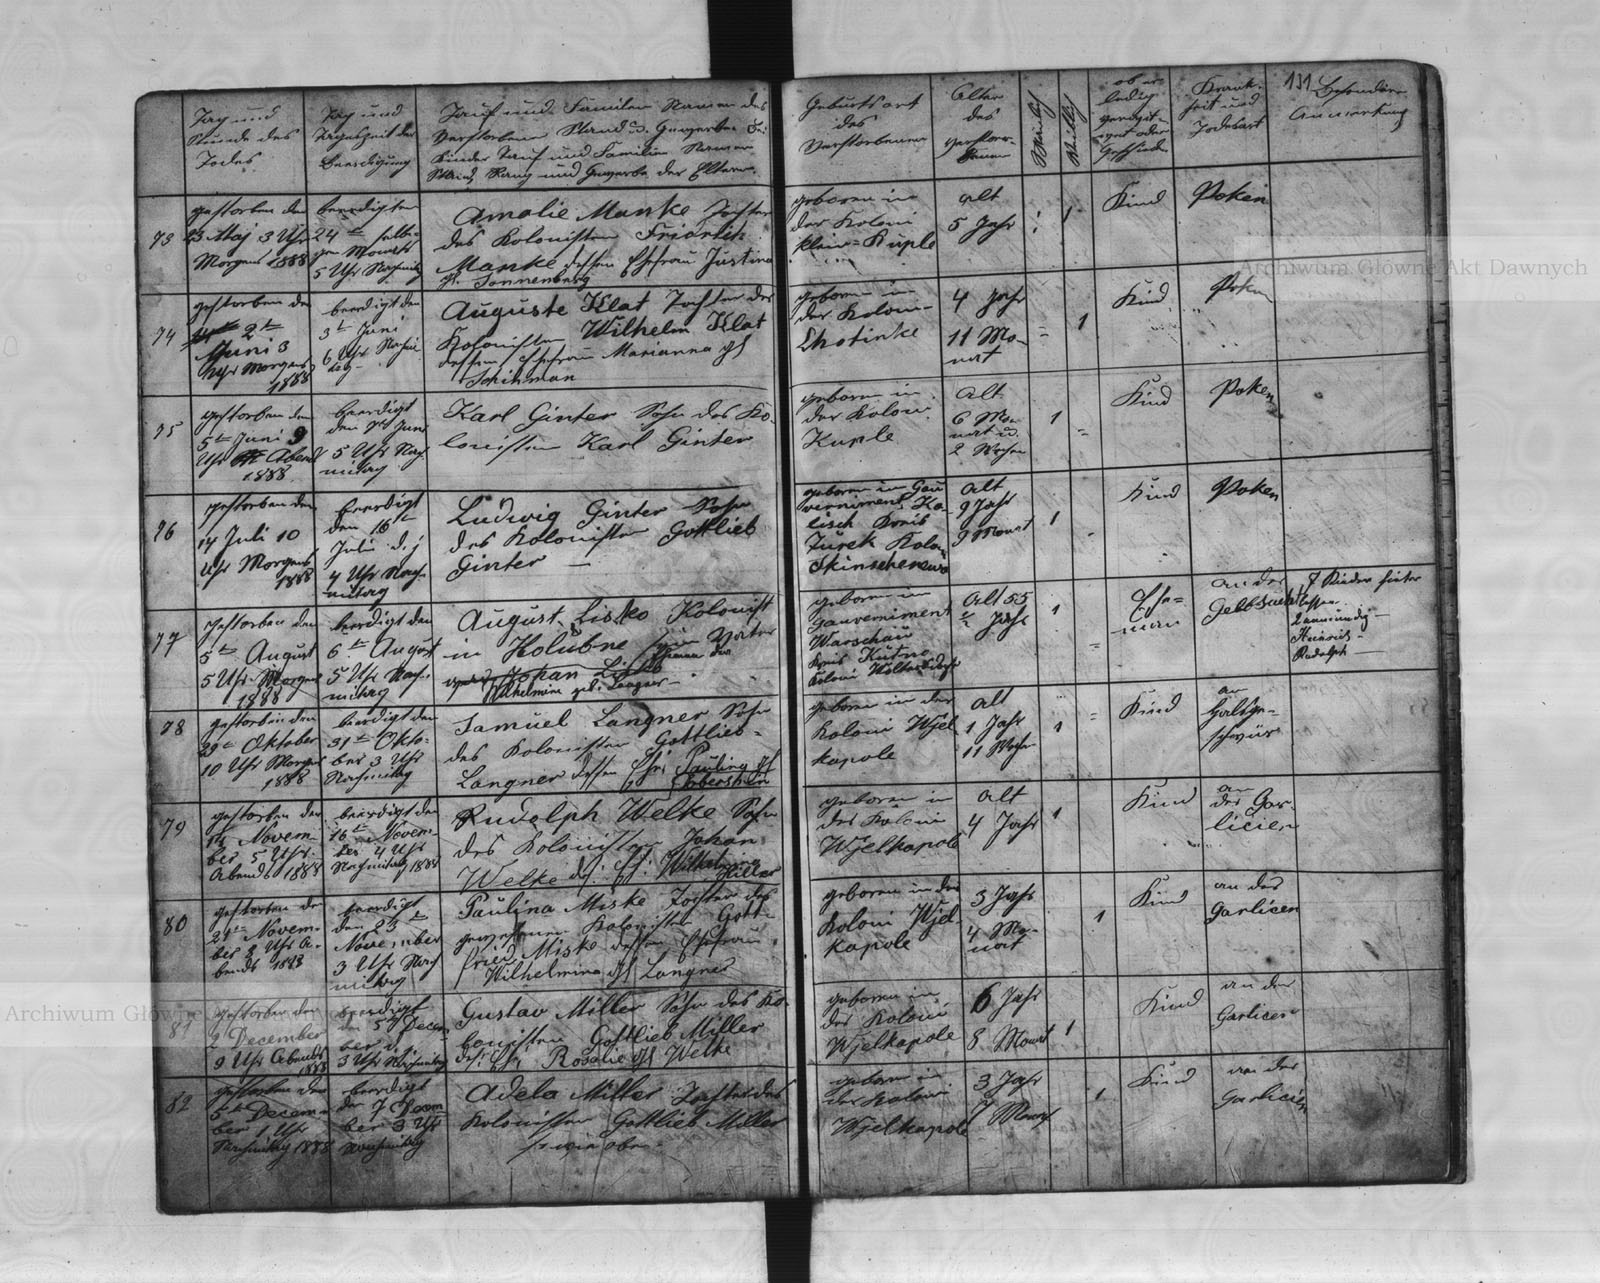 Tag und
Stunde des
Todes
Tag und
Tageszeit der
Beerdigung
Tauf und Familien Namen des
Verstorbenen Stand u. Gewerbe. Bei
Kinder Tauf und Familien Namen
Stand, Rang und Gewerbe der Eltern.
Geburtsort
des
Verstorbenen
Alter
des
verstor-
benen
ob er
ledig
vereh
oder
Krank-
heit und
Todesart
131 Besondere
Anmerkung
73
gestorben den
23 Maj 3 Uhr
Morgens 1888
beerdigt den
24 ten selbi-
gen Monats
5 Uhr Nachmittg
Amalie Manke Tochter
des Kolonisten Friedrich
Manke dessen Ehefrau Justina
g. Sonnenberg
geboren in
der Koloni
klein=Kuple
alt
5 Jahr
1
Kind
Poken
74
gestorben den
2 te
Juni 3
Uhr Morgens
1888
beerdigt den
3 te Juni
6 Uhr Nachmi
tag
Auguste Klat Tochter des
Kolonisten Wilhelm Klat
dessen Ehefrau Marianna gb
Schihman
geboren in
der Koloni
Chotinke
4 Jahr
11 Mo-
nat
1
Kind
Poken
75
gestorben den
5 ten Juni 9
Uhr Abends
1888
beerdigt
den 7 te Juni
5 Uhr Nach-
mittag
Karl Ginter Sohn des Ko-
lonisten Karl Ginter
geboren in
der Koloni
Kuple
Alt
6 Mo-
nat u.
2 Wochen
1
Kind
Poken
76
gestorben den
14 Juli 10
Uhr Morgens
1888
beerdigt
den 16 te
Juli d. j
4 Uhr Nach-
mittag
Ludwig Ginter Sohn
des Kolonisten Gottlieb
Ginter —
geboren im Gou
vernimenet Ka-
lisch Kreis
Turek Kolon
Skinschenewo
Alt
9 Jahr
9 Monat
1
Kind
Poken
77
gestorben den
5 ten August
5 Uhr Morgens
1888
beerdigt den
6 ten August
5 Uhr Nach-
mittag
August Lisko Kolonist
in Kolubne sein Vater
Johan Lisko
Wilhelmine geb. Langner —
geboren im
Gauverniment
Warschau
Kreis Kutno
Koloni
Alt 55
Jahr
1
Ehe=
man
an der
Gelbsucht
7 Kinder hinter
lassen
Heinrich —
Rudolph —
78
gestorben den
29 te Oktober
10 Uhr Morgen
1888
beerdigt den
31 te Okto-
ber 3 Uhr
Nachmittag
Samuel Langner Sohn
des Kolonisten Gottlieb-
Langner dessen Ehe: Pauline gb
geboren in der
Koloni Wjel
kapole
alt
1 Jahr
11 Wochen
1
Kind
an
Halsge-
schwür
79
gestorben den
14 Novem-
ber 5 Uhr
Abends 1888
beerdigt den
16 te Novem-
ber 4 Uhr
Nachmittag 1888
Rudolph Welke Sohn
des Kolonisten Johan
Welke d: Eh: Wilhelmine
Hiller
geboren in
der Koloni
Wjelkapole
alt
4 Jahr
1
Kind
an
der Gar-
licien
80
gestorben den
21 te Novem-
ber 8 Uhr A-
bends 1888
beerdigt
den 23 te
November
3 Uhr Nach
mittag
Paulina Miske Tochter des
gewesenen Kolonisten Gott-
fried Miske dessen Ehefrau
Wilhelmina gb Langner
geboren in der
Koloni Wjel-
kapole
3 Jahr
4 Mo-
nat
1
Kind
an der
Garlicen
81
gestorben den
December
9 Uhr Abends
1888
beerdigt
den 5 Decem
ber d. j.
3 Uhr Nachmittag
Gustav Miller Sohn des Ko-
lonisten Gottlieb Miller
des: Ehe: Rosalie gb Welke
geboren in
der Koloni
Wjelkapole
6 Jahr
8 Monat
1
Kind
an der
Garlicen
82
gestorben den
5 te Decem-
ber 1 Uhr
Nachmittag 1888
beerdigt
den 7 Decem
ber 3 Uhr
Nachmittag
Adela Miller Tochter des
Kolonisten Gottlieb Miller
wie oben
geboren in
der Koloni
Wjelkapole
3 Jahr
7 Monat
1
Kind
an der
Garlicien
Archiwum Główne Akt Dawnych
Archiwum Główne Akt Dawnych